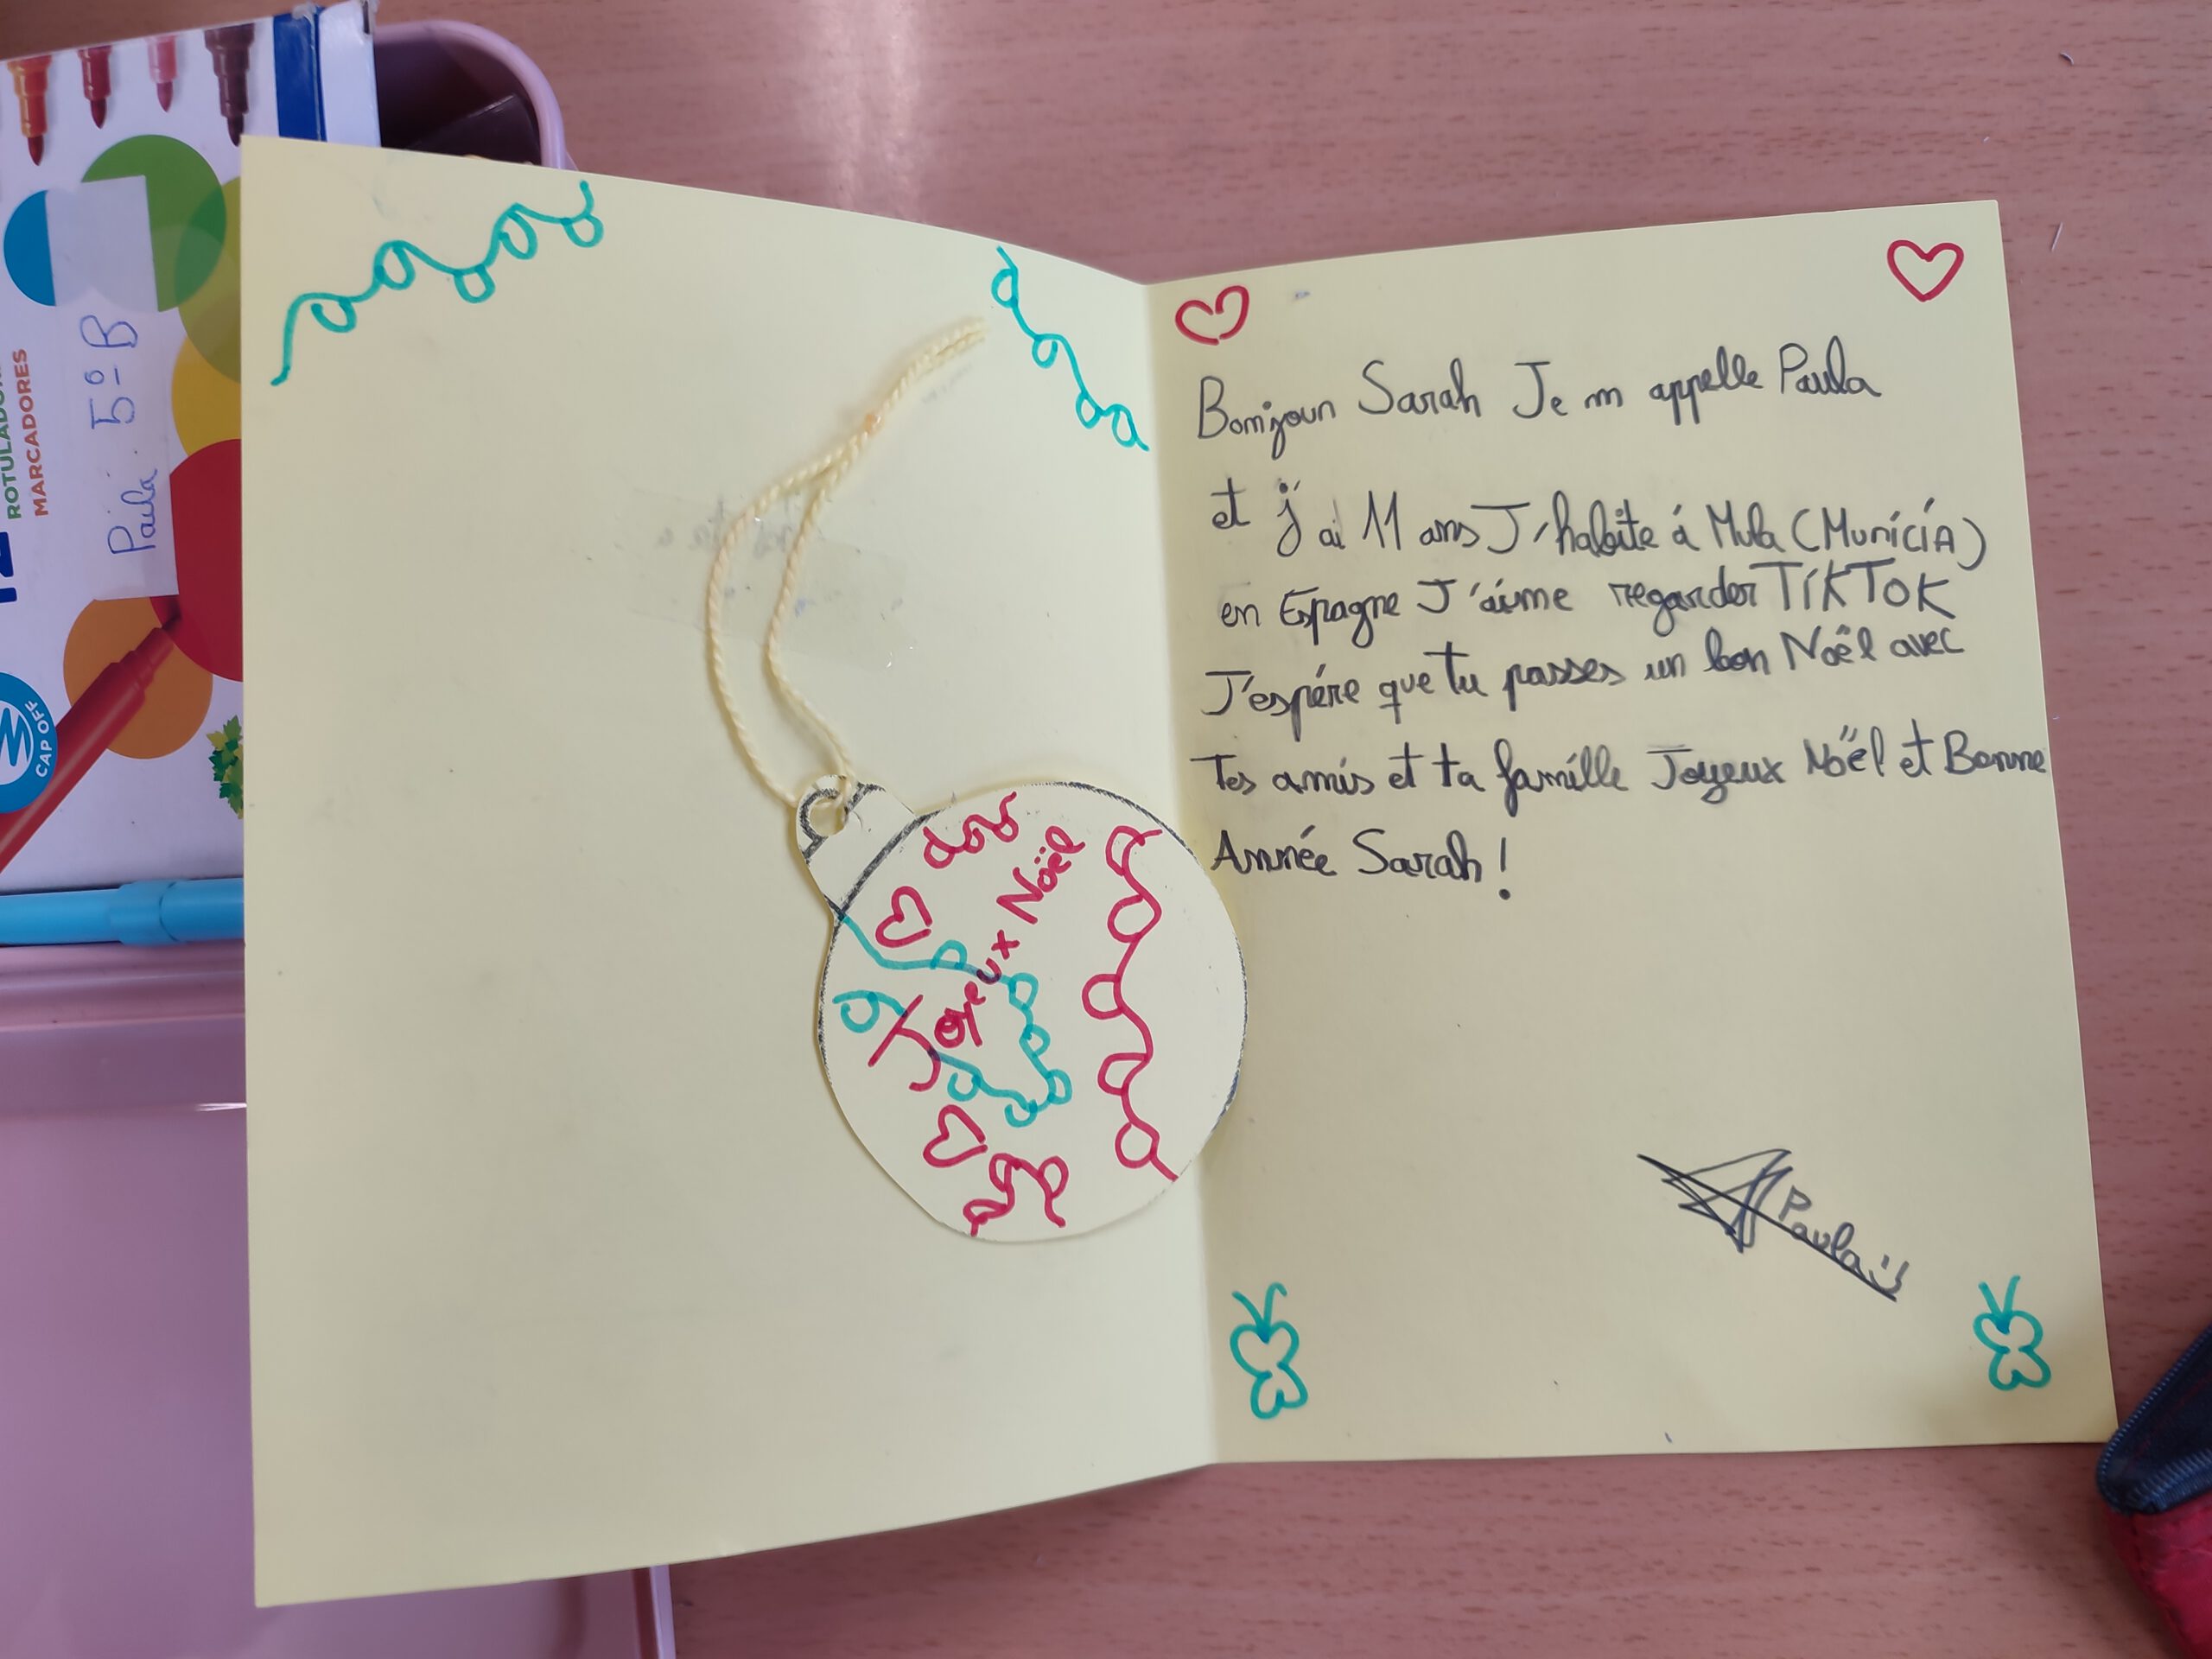 ROTULADOR
MARCADORES
12
Paula 5º B
CAP OFF
Joyeux Noël
Bonjour Sarah Je m appelle Paula
et j ai 11 ans J'habite á Mula (Murícía)
en Epagne J'aime regarder TíKTOK
J'espére que tu passes un bon Noël avec
Tes amis et ta famílle Joyeux Noël et Bonne
Année Sarah!
Paula :)